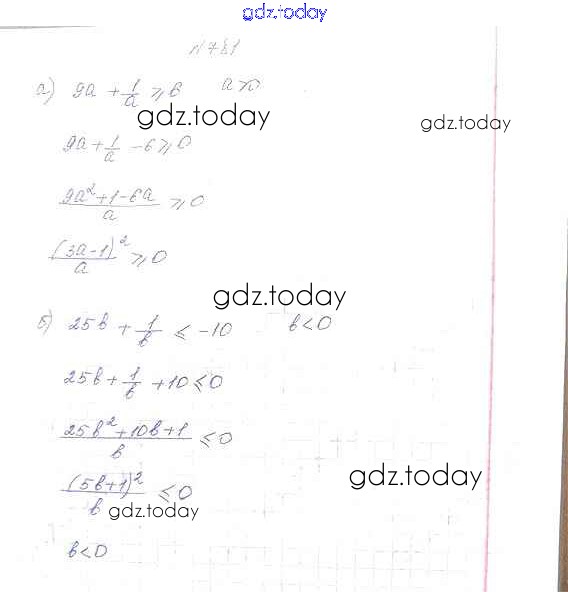 gdz.today
N 781
а) 9a + 1/a ≥ 6 a>0
gdz.today
gdz.today
9a + 1/a - 6 ≥ 0
(9a² + 1 - 6a)/a ≥ 0
(3a - 1)²/a ≥ 0
gdz.today
б) 25b + 1/b ≤ -10 b<0
25b + 1/b + 10 ≤ 0
(25b² + 10b + 1)/b ≤ 0
gdz.today
(5b + 1)²/b ≤ 0
gdz.today
b<0